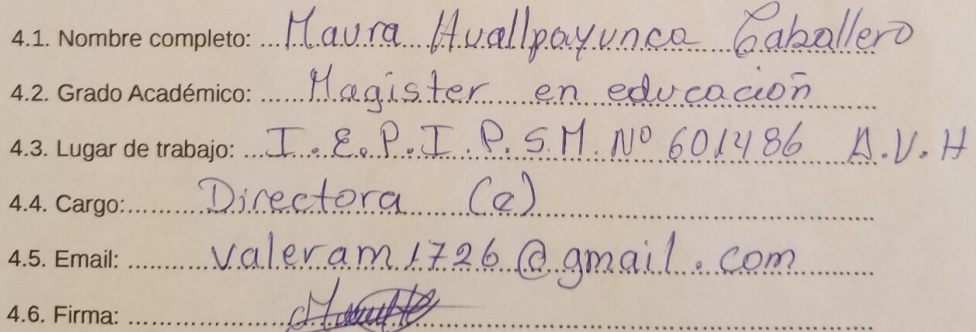 4.1. Nombre completo: Maura Huallpayunca Caballero
4.2. Grado Académico: Magister en educación
4.3. Lugar de trabajo: I.E.P.I.P.S.M. Nº 601486 A.V.H
4.4. Cargo: Directora (e)
4.5. Email: valeram1726@gmail.com
4.6. Firma: